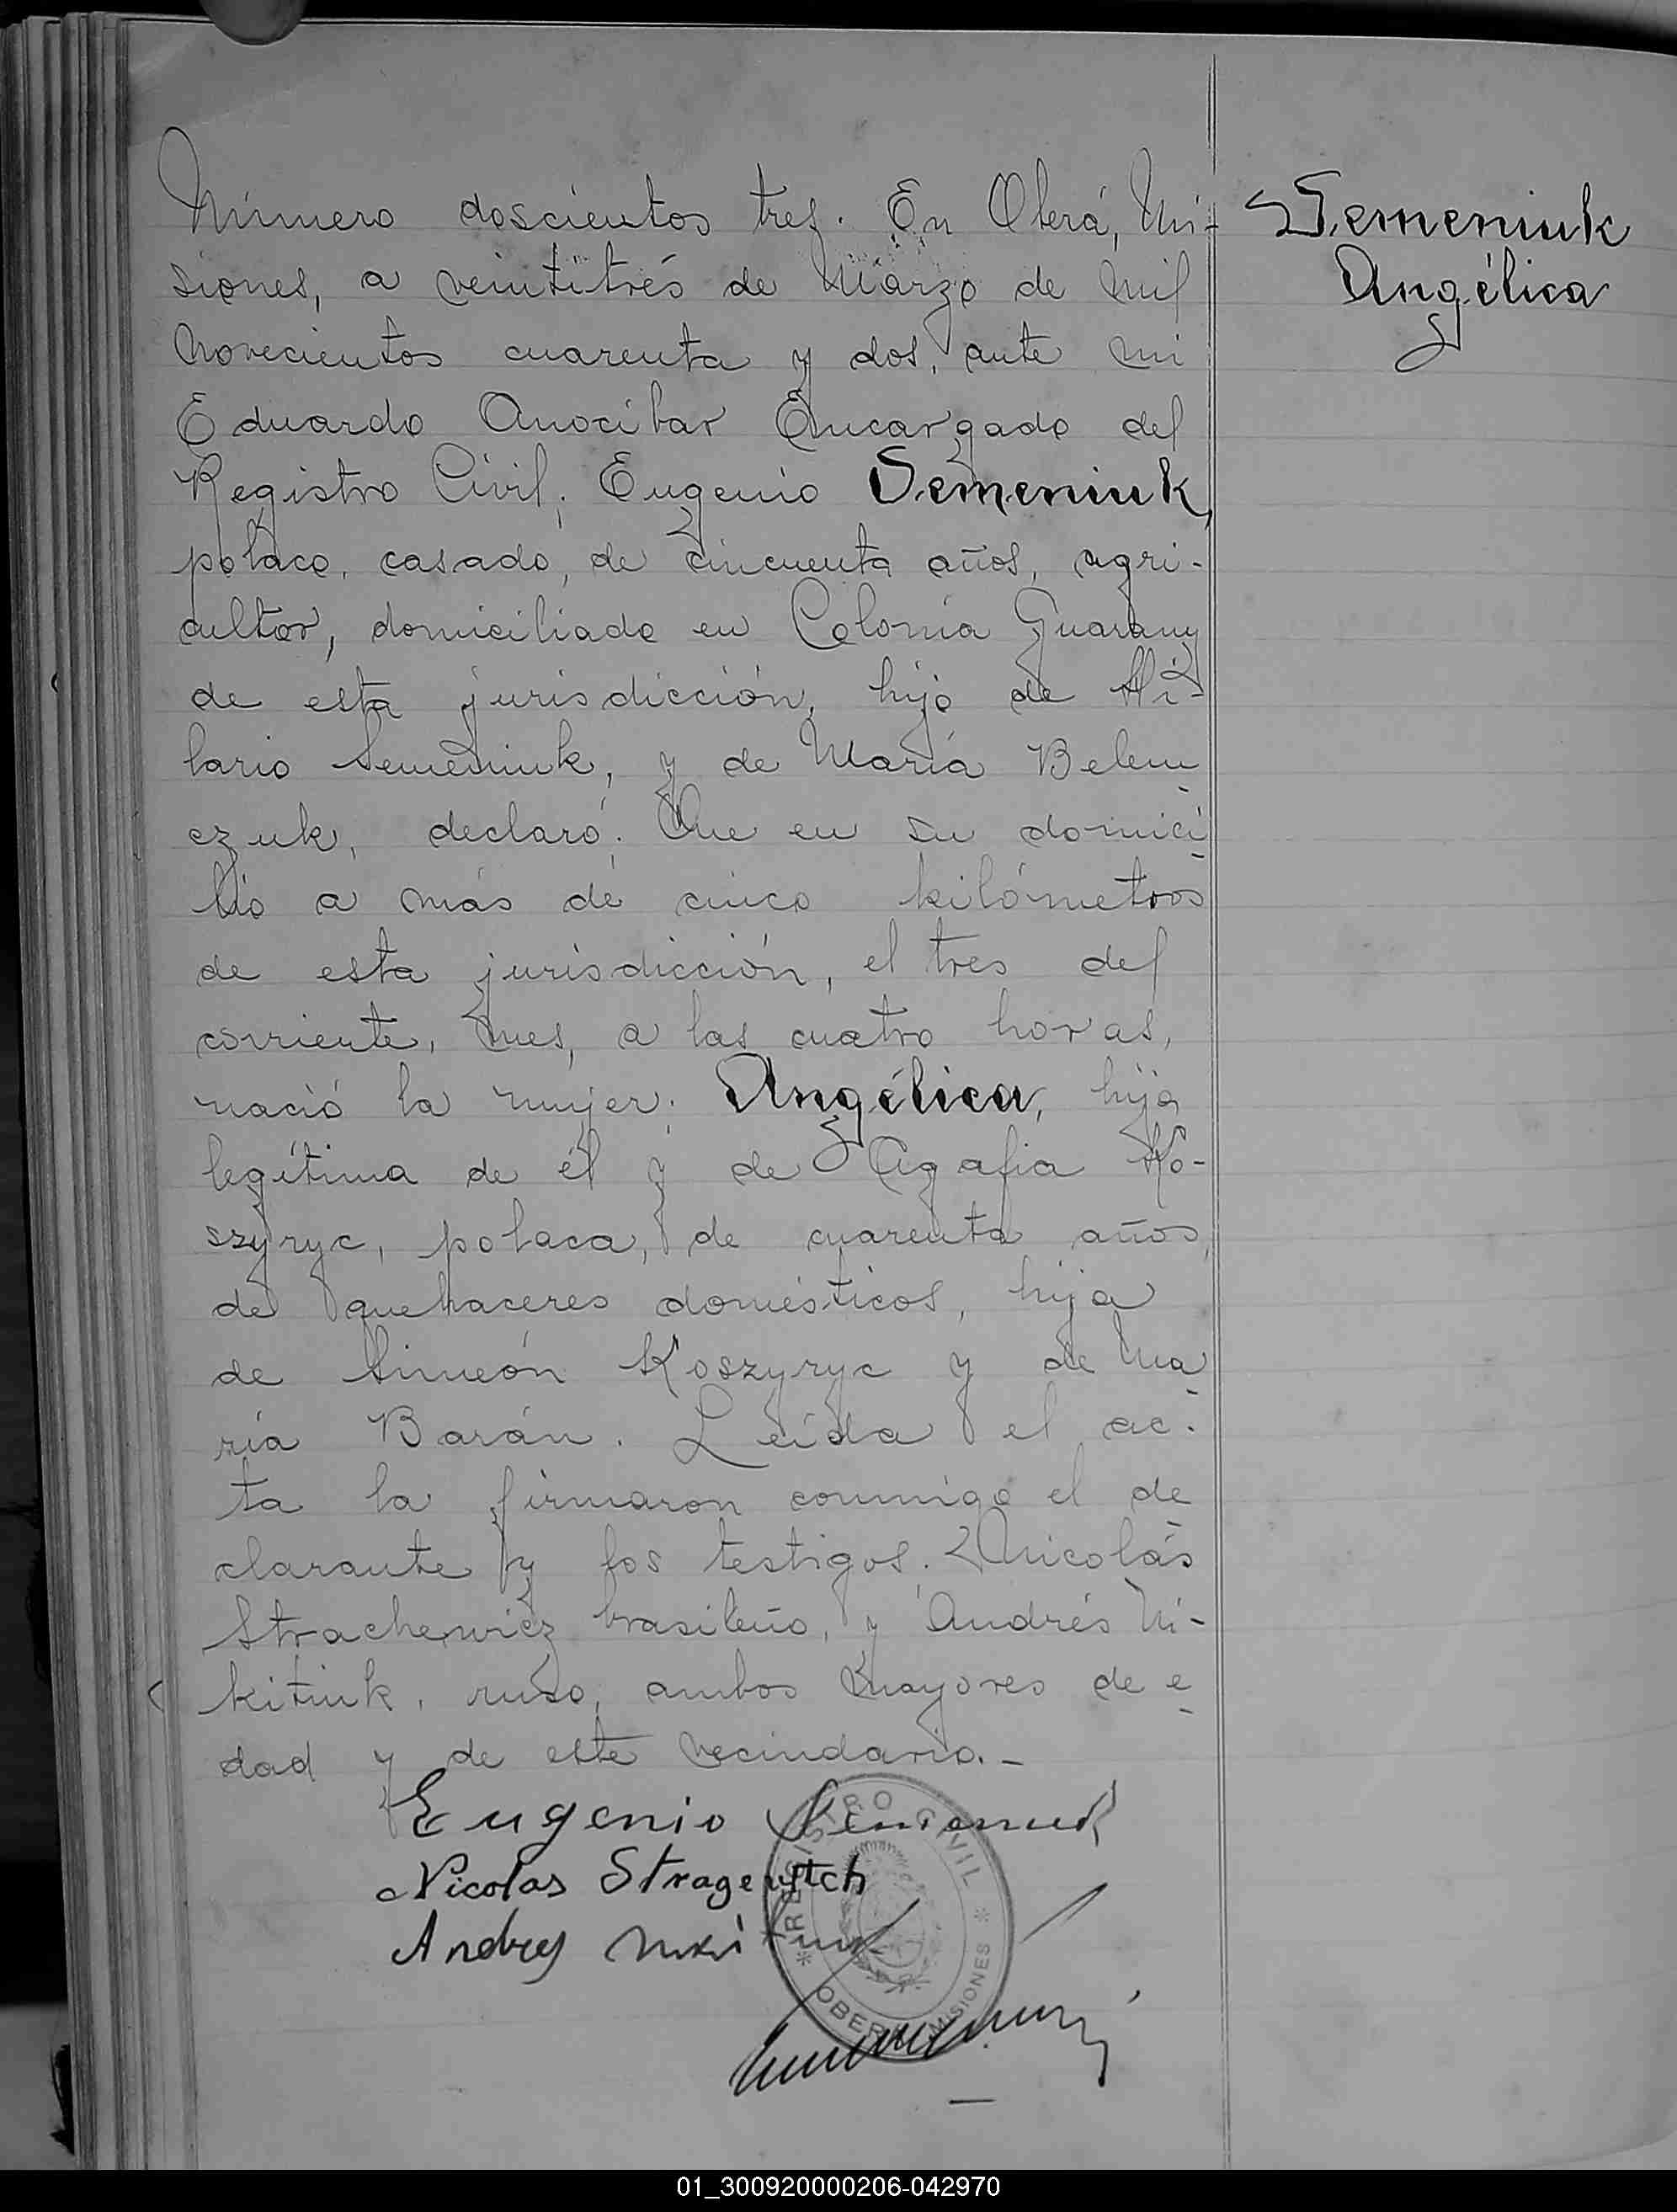 Número doscientos tres. En Oberá, Mi-
siones, a veintitrés de Marzo de mil
novecientos cuarenta y dos, ante mi
Eduardo Anocibar Encargado del
Registro Civil; Eugenio Semeniuk,
polaco, casado, de cincuenta años, agri-
cultor, domiciliado en Colonia Guarany
de esta jurisdicción, hijo de Hi-
lario Semeniuk, y de María Belem-
czuk, declaró: Que en su domici-
lio a más de cinco kilómetros
de esta jurisdicción, el tres del
corriente, mes, a las cuatro horas,
nació la mujer: Angélica, hija
legítima de él y de Agafia Ko-
szyryc, polaca, de cuarenta años,
de quehaceres domésticos, hija
de Simeón Koszyryc y de Ma-
ría Barán. Leída el ac-
ta la firmaron conmigo el de-
clarante y los testigos: Nicolás
Strachewicz brasileño, y Andrés Ni-
kitiuk, ruso, ambos mayores de e-
dad y de este vecindario.-
Semeniuk
Angélica
Eugenio Semeniuk
Nicolas Stragevitch
Andrey
REGISTRO CIVIL
* OBERÁ MISIONES *
01_300920000206-042970